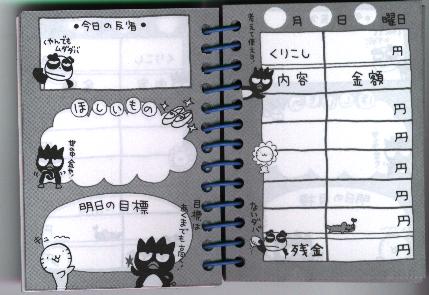 ・今日の反省・
くやんでも
ムダダバ
ほしいもの
世の中金や。
明日の目標
目標は
あくまでも高っ!
考えて使え。
月 日 曜日
くりこし 円
内容 金額
円
円
円
円
円
ないダバ
残金 円